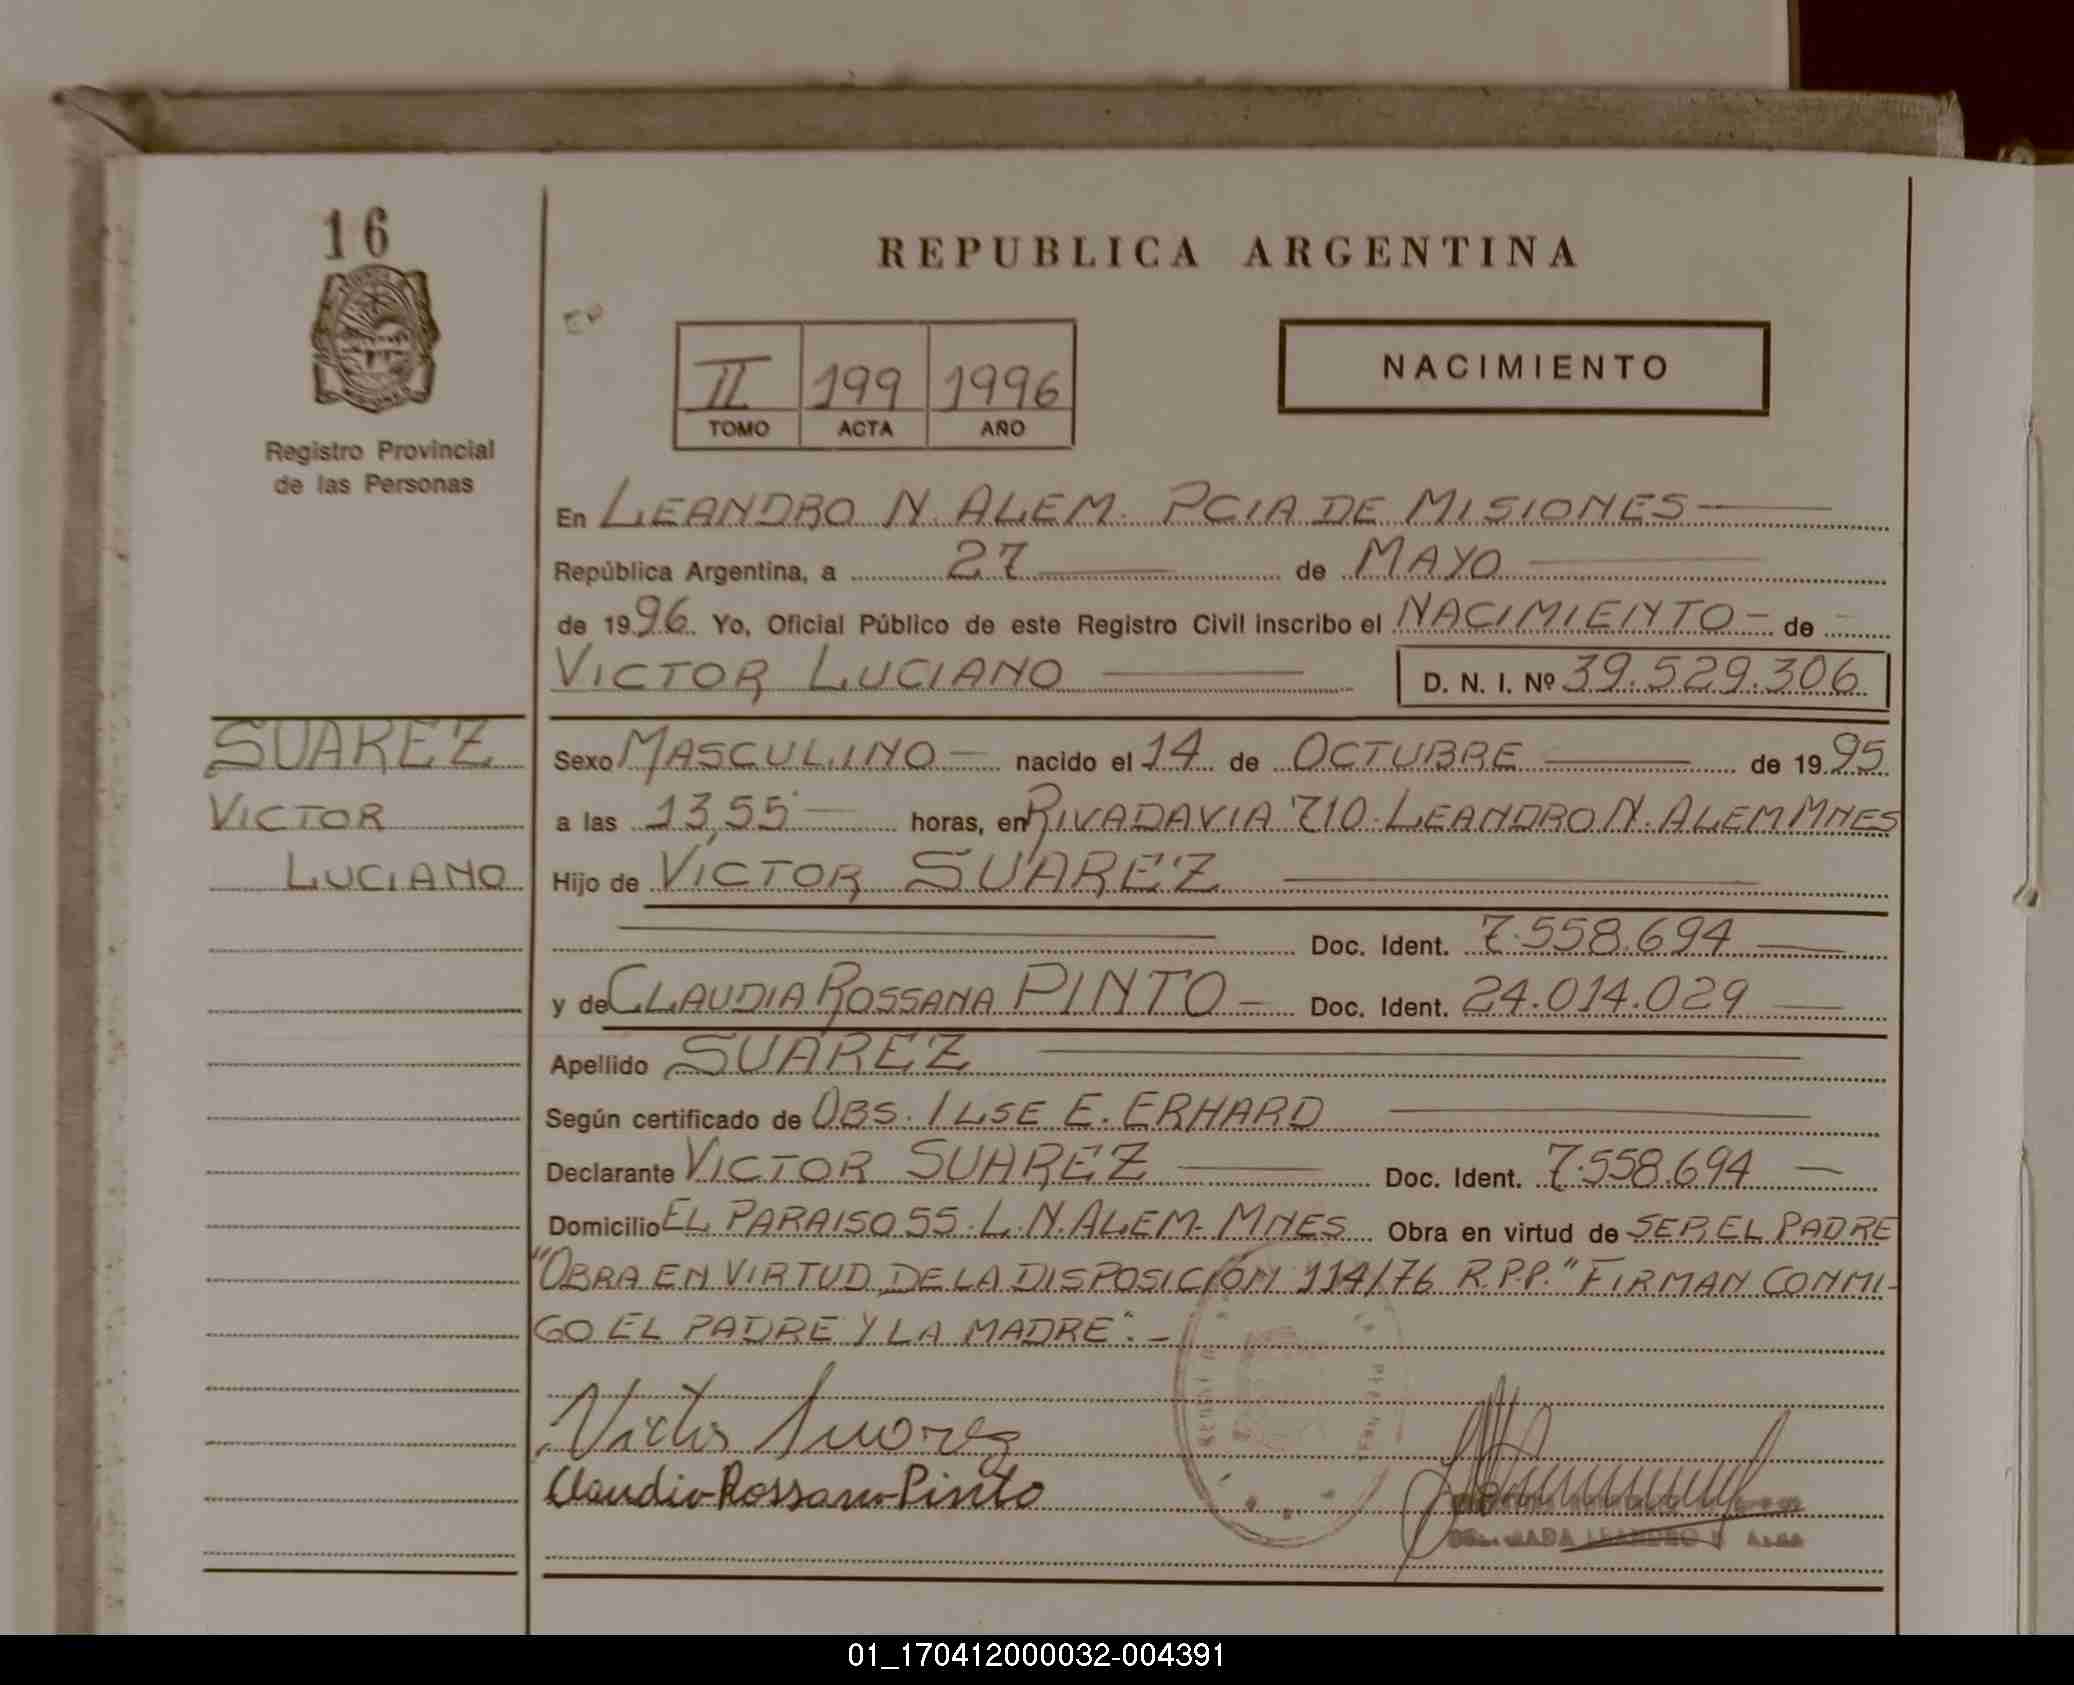 16
REPUBLICA ARGENTINA
II 199 1996
TOMO ACTA AÑO
NACIMIENTO
Registro Provincial
de las Personas
En LEANDRO N. ALEM. PCIA DE MISIONES
República Argentina, a 27 de MAYO
de 1996. Yo, Oficial Público de este Registro Civil inscribo el NACIMIENTO - de
VICTOR LUCIANO D. N. I. Nº 39.529.306
SUAREZ
VICTOR
LUCIANO
Sexo MASCULINO - nacido el 14 de OCTUBRE de 1995
a las 13,55 horas, en RIVADAVIA 710. LEANDRO N. ALEM MNES
Hijo de VICTOR SUAREZ
Doc. Ident. 7.558.694
y de CLAUDIA ROSSANA PINTO - Doc. Ident. 24.014.029
Apellido SUAREZ
Según certificado de OBS. ILSE E. ERHARD
Declarante VICTOR SUAREZ Doc. Ident. 7.558.694
Domicilio EL PARAISO 55. L. N. ALEM. MNES Obra en virtud de SER EL PADRE
"OBRA EN VIRTUD DE LA DISPOSICION 114/76 R.P.P." FIRMAN CONMI-
GO EL PADRE Y LA MADRE". -
Victor Suarez
Claudia Rossana Pinto
LEANDRO N ALEM
01_170412000032-004391